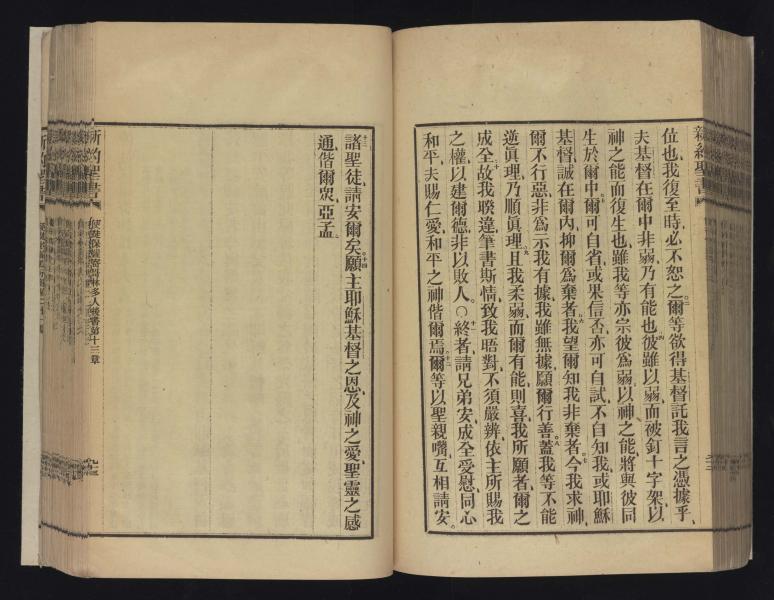 位也、我復至時、必不恕之。三爾等欲得基督託我言之憑據乎、
夫基督在爾中非弱、乃有能也、四彼雖以弱、而被釘十字架、以
神之能而復生也、雖我等亦宗彼爲弱、以神之能、將與彼同
生於爾中、五爾可自省或果信否、亦可自試、不自知我或耶穌
基督誠在爾內、抑爾爲棄者、六我望爾知我非棄者、七今我求神、
爾不行惡、非爲示我有據、我雖無據、願爾行善、八蓋我等不能
逆眞理、乃順眞理、九且我柔弱、而爾有能、則喜、我所願者、爾之
成全、十故我暌違、筆書斯情、致我晤對、不須嚴辨、依主所賜我
之權、以建爾德、非以敗人。○十一終者、請兄弟安、成全、受慰、同心
和平、夫賜仁愛和平之神偕爾焉、十二爾等以聖親嚌、互相請安。
新約聖書
十三諸聖徒請安爾矣、十四願主耶穌基督之恩、及神之愛、聖靈之感
通、偕爾眾、亞孟、
新約聖書
使徒保羅達哥林多人後書第十三章